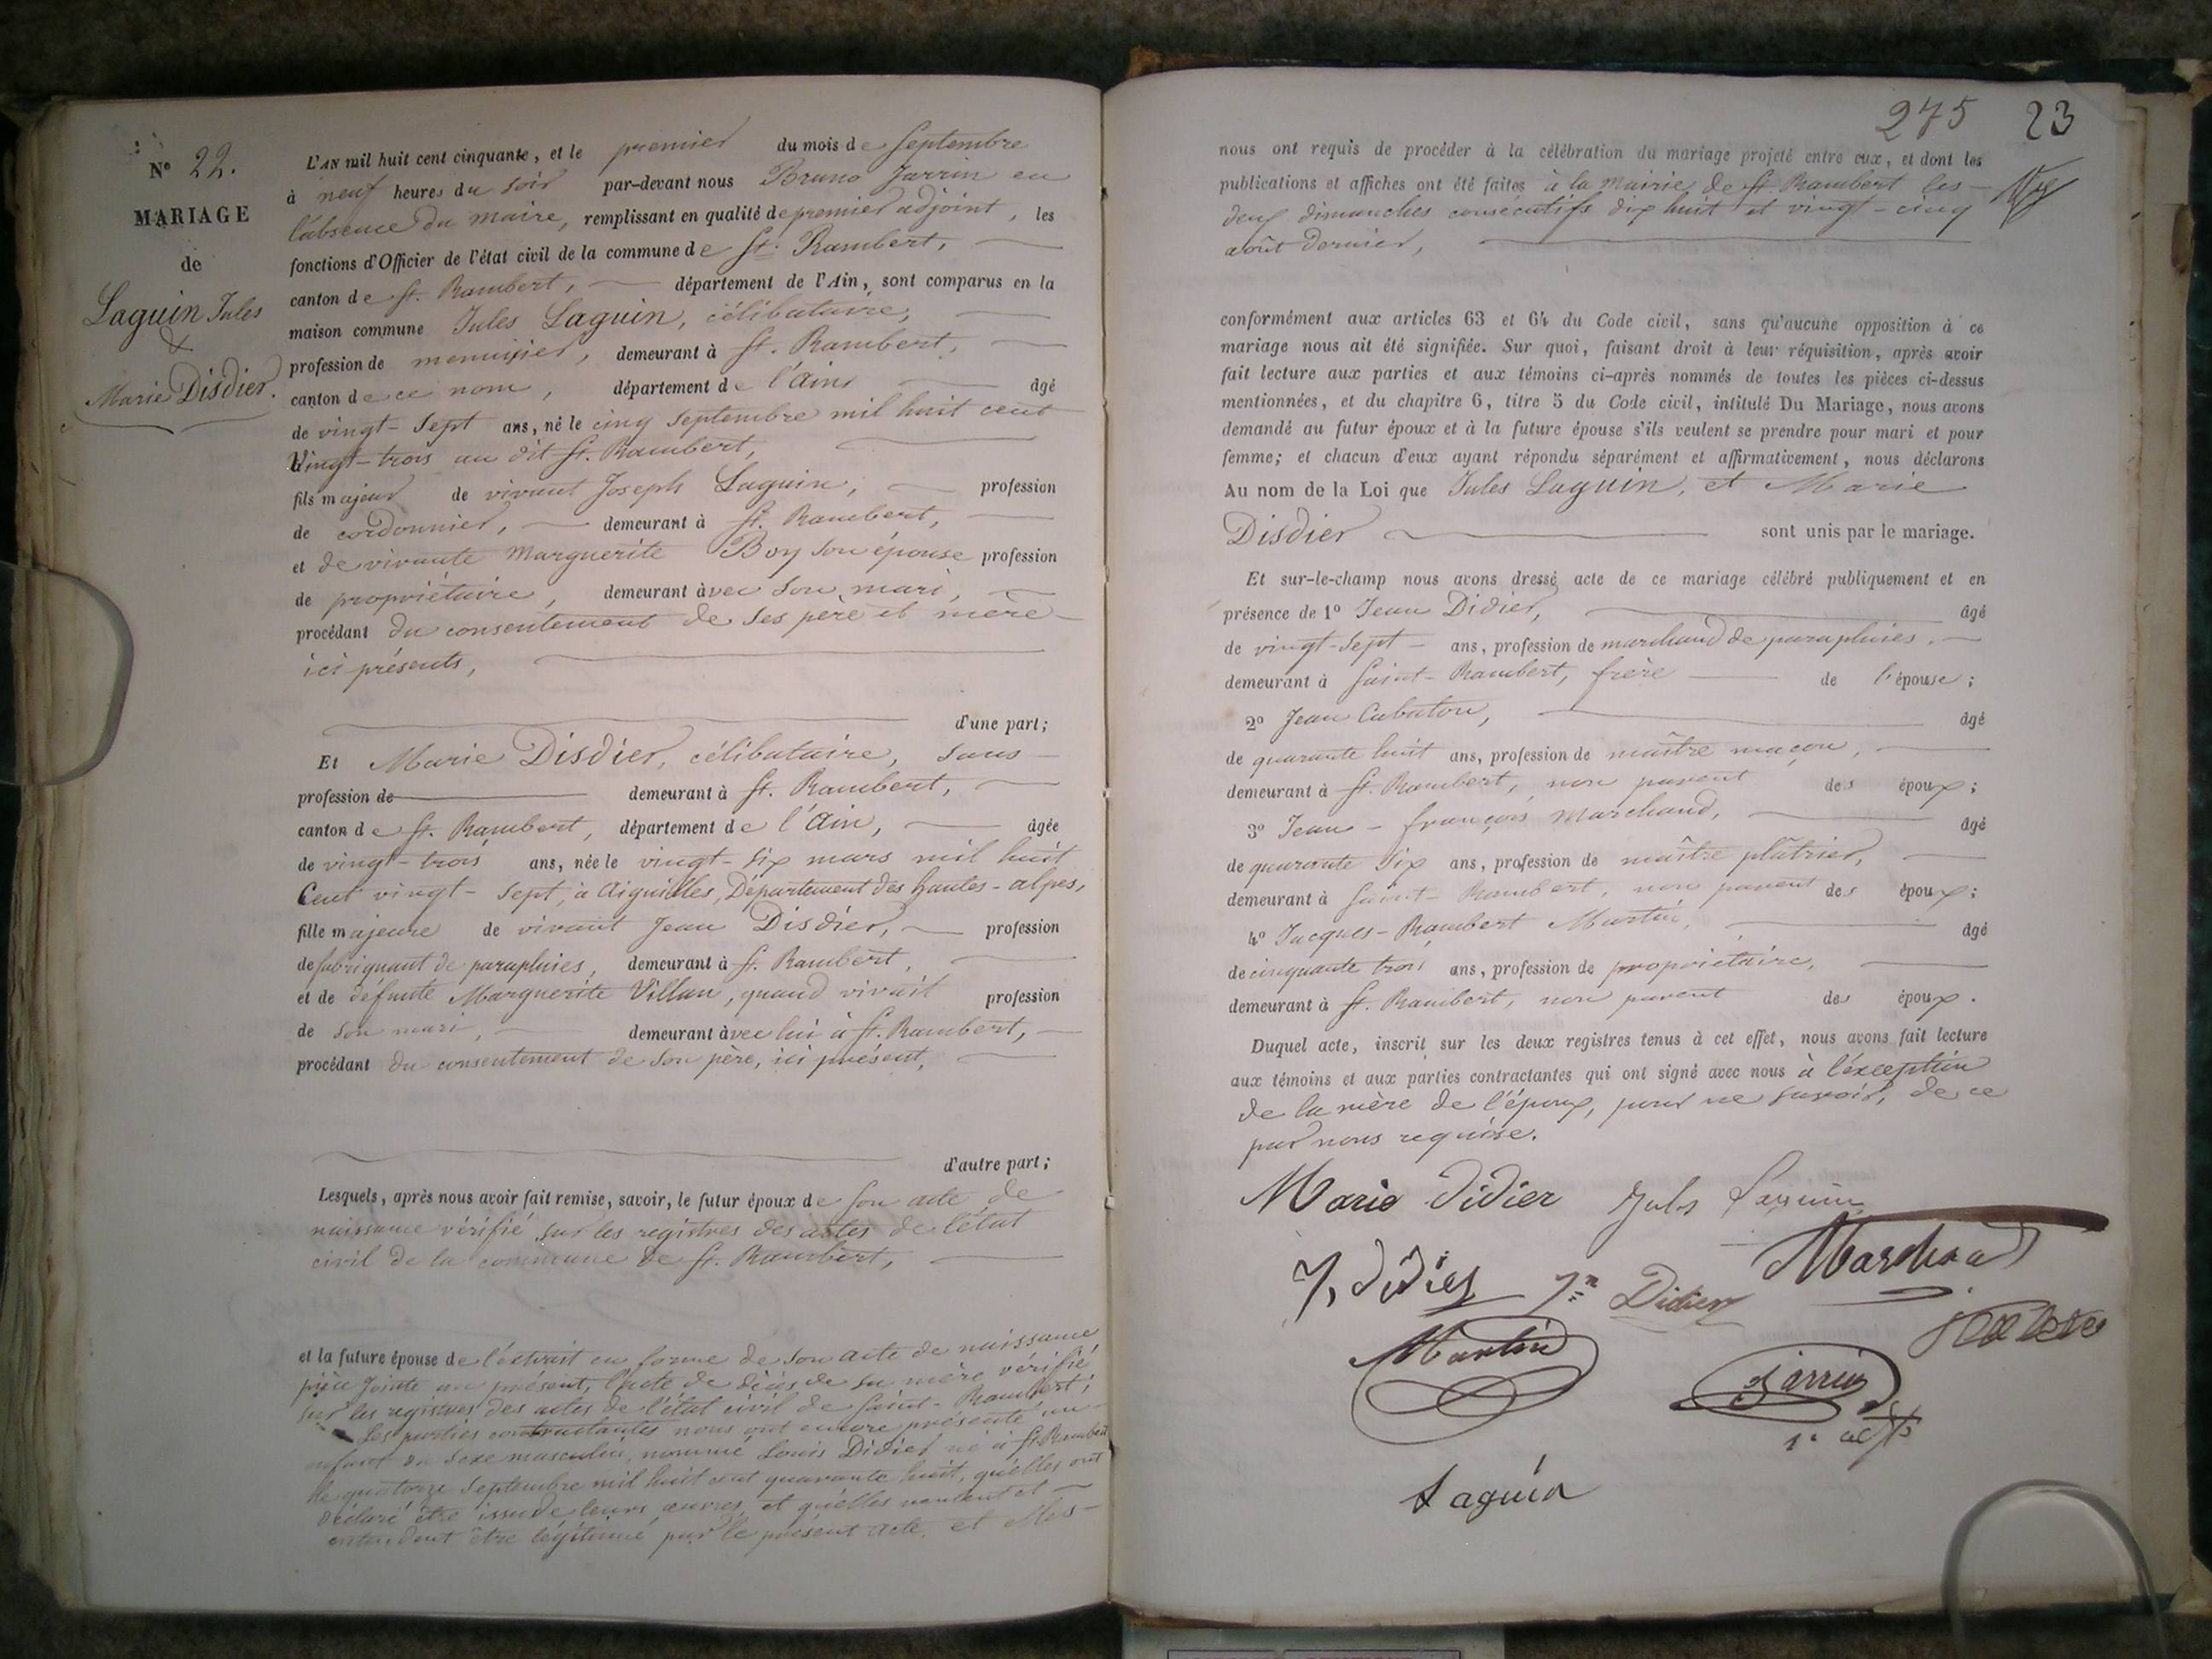 N° 22.
MARIAGE
de
Laguin Jules
&
Marie Disdier.
L'AN mil huit cent cinquante, et le premier du mois de Septembre
à neuf heures du soir par-devant nous Bruno Jarrin en
l'absence du maire, remplissant en qualité de premier adjoint, les
fonctions d'Officier de l'état civil de la commune de St. Rambert,
canton de St. Rambert, département de l'Ain, sont comparus en la
maison commune Jules Laguin, célibataire,
profession de menuisier, demeurant à St. Rambert,
canton de ce nom, département de l'Ain âgé
de vingt-sept ans, né le cinq septembre mil huit cent
Vingt-trois au dit St. Rambert,
fils majeur de vivant Joseph Laguin, profession
de cordonnier, demeurant à St. Rambert,
et de vivante Marguerite Boy son épouse profession
de propriétaire, demeurant avec son mari,
procédant du consentement de ses père et mère
ici présents,
d'une part;
Et Marie Disdier, célibataire, sans
profession de demeurant à St. Rambert,
canton de St. Rambert, département de l'Ain, âgée
de vingt-trois ans, née le vingt-six mars mil huit
Cent vingt-sept, à Aiguilles, Département des hautes-alpes,
fille majeure de vivant Jean Disdier, profession
de fabriquant de parapluies, demeurant à St. Rambert,
et de défunte Marguerite Villan, quand vivait profession
de son mari, demeurant avec lui à St. Rambert,
procédant du consentement de son père, ici présent,
d'autre part;
Lesquels, après nous avoir fait remise, savoir, le futur époux de son acte de
naissance vérifié sur les registres des actes de l'état
civil de la commune de St. Rambert,
et la future épouse de l'extrait en forme de son acte de naissance
pièce jointe au présent, l'acte de décès de sa mère vérifié
sur les registres des actes de l'état civil de Saint-Rambert;
Les parties contractantes nous ont encore présenté un
enfant du sexe masculin, nommé Louis Didier né à St. Rambert
le quatorze septembre mil huit cent quarante huit, qu'elles ont
déclaré être issu de leurs œuvres, et qu'elles veulent et
entendent être légitimé par le présent acte, et elles
275 23
nous ont requis de procéder à la célébration du mariage projeté entre eux, et dont les
publications et affiches ont été faites à la Mairie de St. Rambert les
deux dimanches consécutifs dix huit et vingt-cinq
août dernier,
conformément aux articles 63 et 64 du Code civil, sans qu'aucune opposition à ce
mariage nous ait été signifiée. Sur quoi, faisant droit à leur réquisition, après avoir
fait lecture aux parties et aux témoins ci-après nommés de toutes les pièces ci-dessus
mentionnées, et du chapitre 6, titre 5 du Code civil, intitulé Du Mariage, nous avons
demandé au futur époux et à la future épouse s'ils veulent se prendre pour mari et pour
femme; et chacun d'eux ayant répondu séparément et affirmativement, nous déclarons
Au nom de la Loi que Jules Laguin, et Marie
Disdier sont unis par le mariage.
Et sur-le-champ nous avons dressé acte de ce mariage célébré publiquement et en
présence de 1° Jean Didier, âgé
de vingt-sept ans, profession de marchand de parapluies,
demeurant à Saint-Rambert, frère de l'épouse;
2° Jean Cabaton, âgé
de quarante huit ans, profession de maître maçon,
demeurant à St. Rambert, non parent des époux;
3° Jean-françois Marchand, âgé
de quarante six ans, profession de maître plâtrier,
demeurant à Saint-Rambert, non parent des époux;
4° Jacques-Rambert Martin, âgé
de cinquante trois ans, profession de propriétaire,
demeurant à St. Rambert, non parent des époux.
Duquel acte, inscrit sur les deux registres tenus à cet effet, nous avons fait lecture
aux témoins et aux parties contractantes qui ont signé avec nous à l'exception
de la mère de l'époux, pour ne savoir, de ce
par nous requise.
Marie Didier Jules Laguin
J. Didier Jn Didier Marchand
Martin Jarrin
1er adjt
Laguin